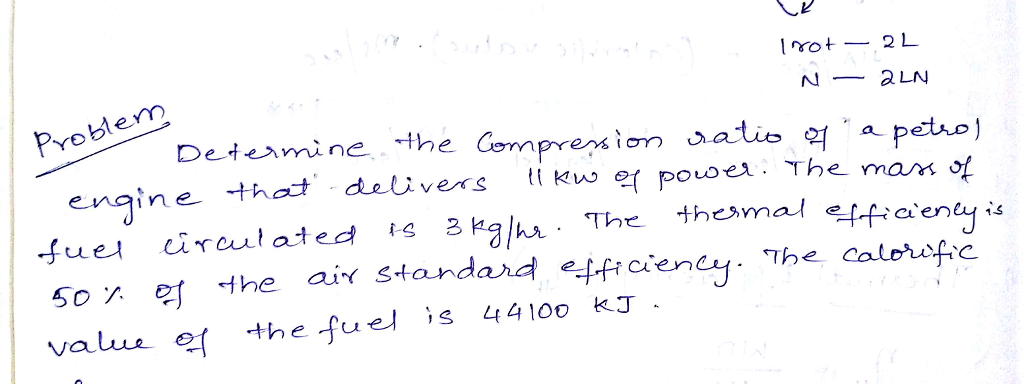 1rot — 2L
N — 2LN
Problem
Determine the Compression ratio of a petrol
engine that delivers 11 kw of power. The mass of
fuel circulated is 3 kg/hr. The thermal efficiency is
50 % of the air standard efficiency. The calorific
value of the fuel is 44100 KJ.